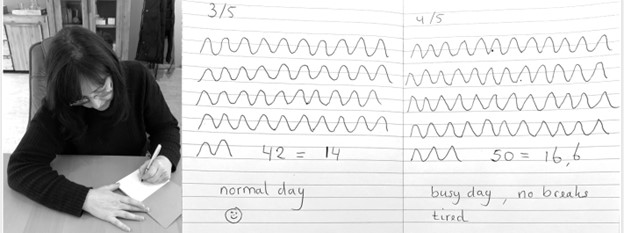 3/5
42 = 14
normal day
4/5
50 = 16,6
busy day, no breaks
tired